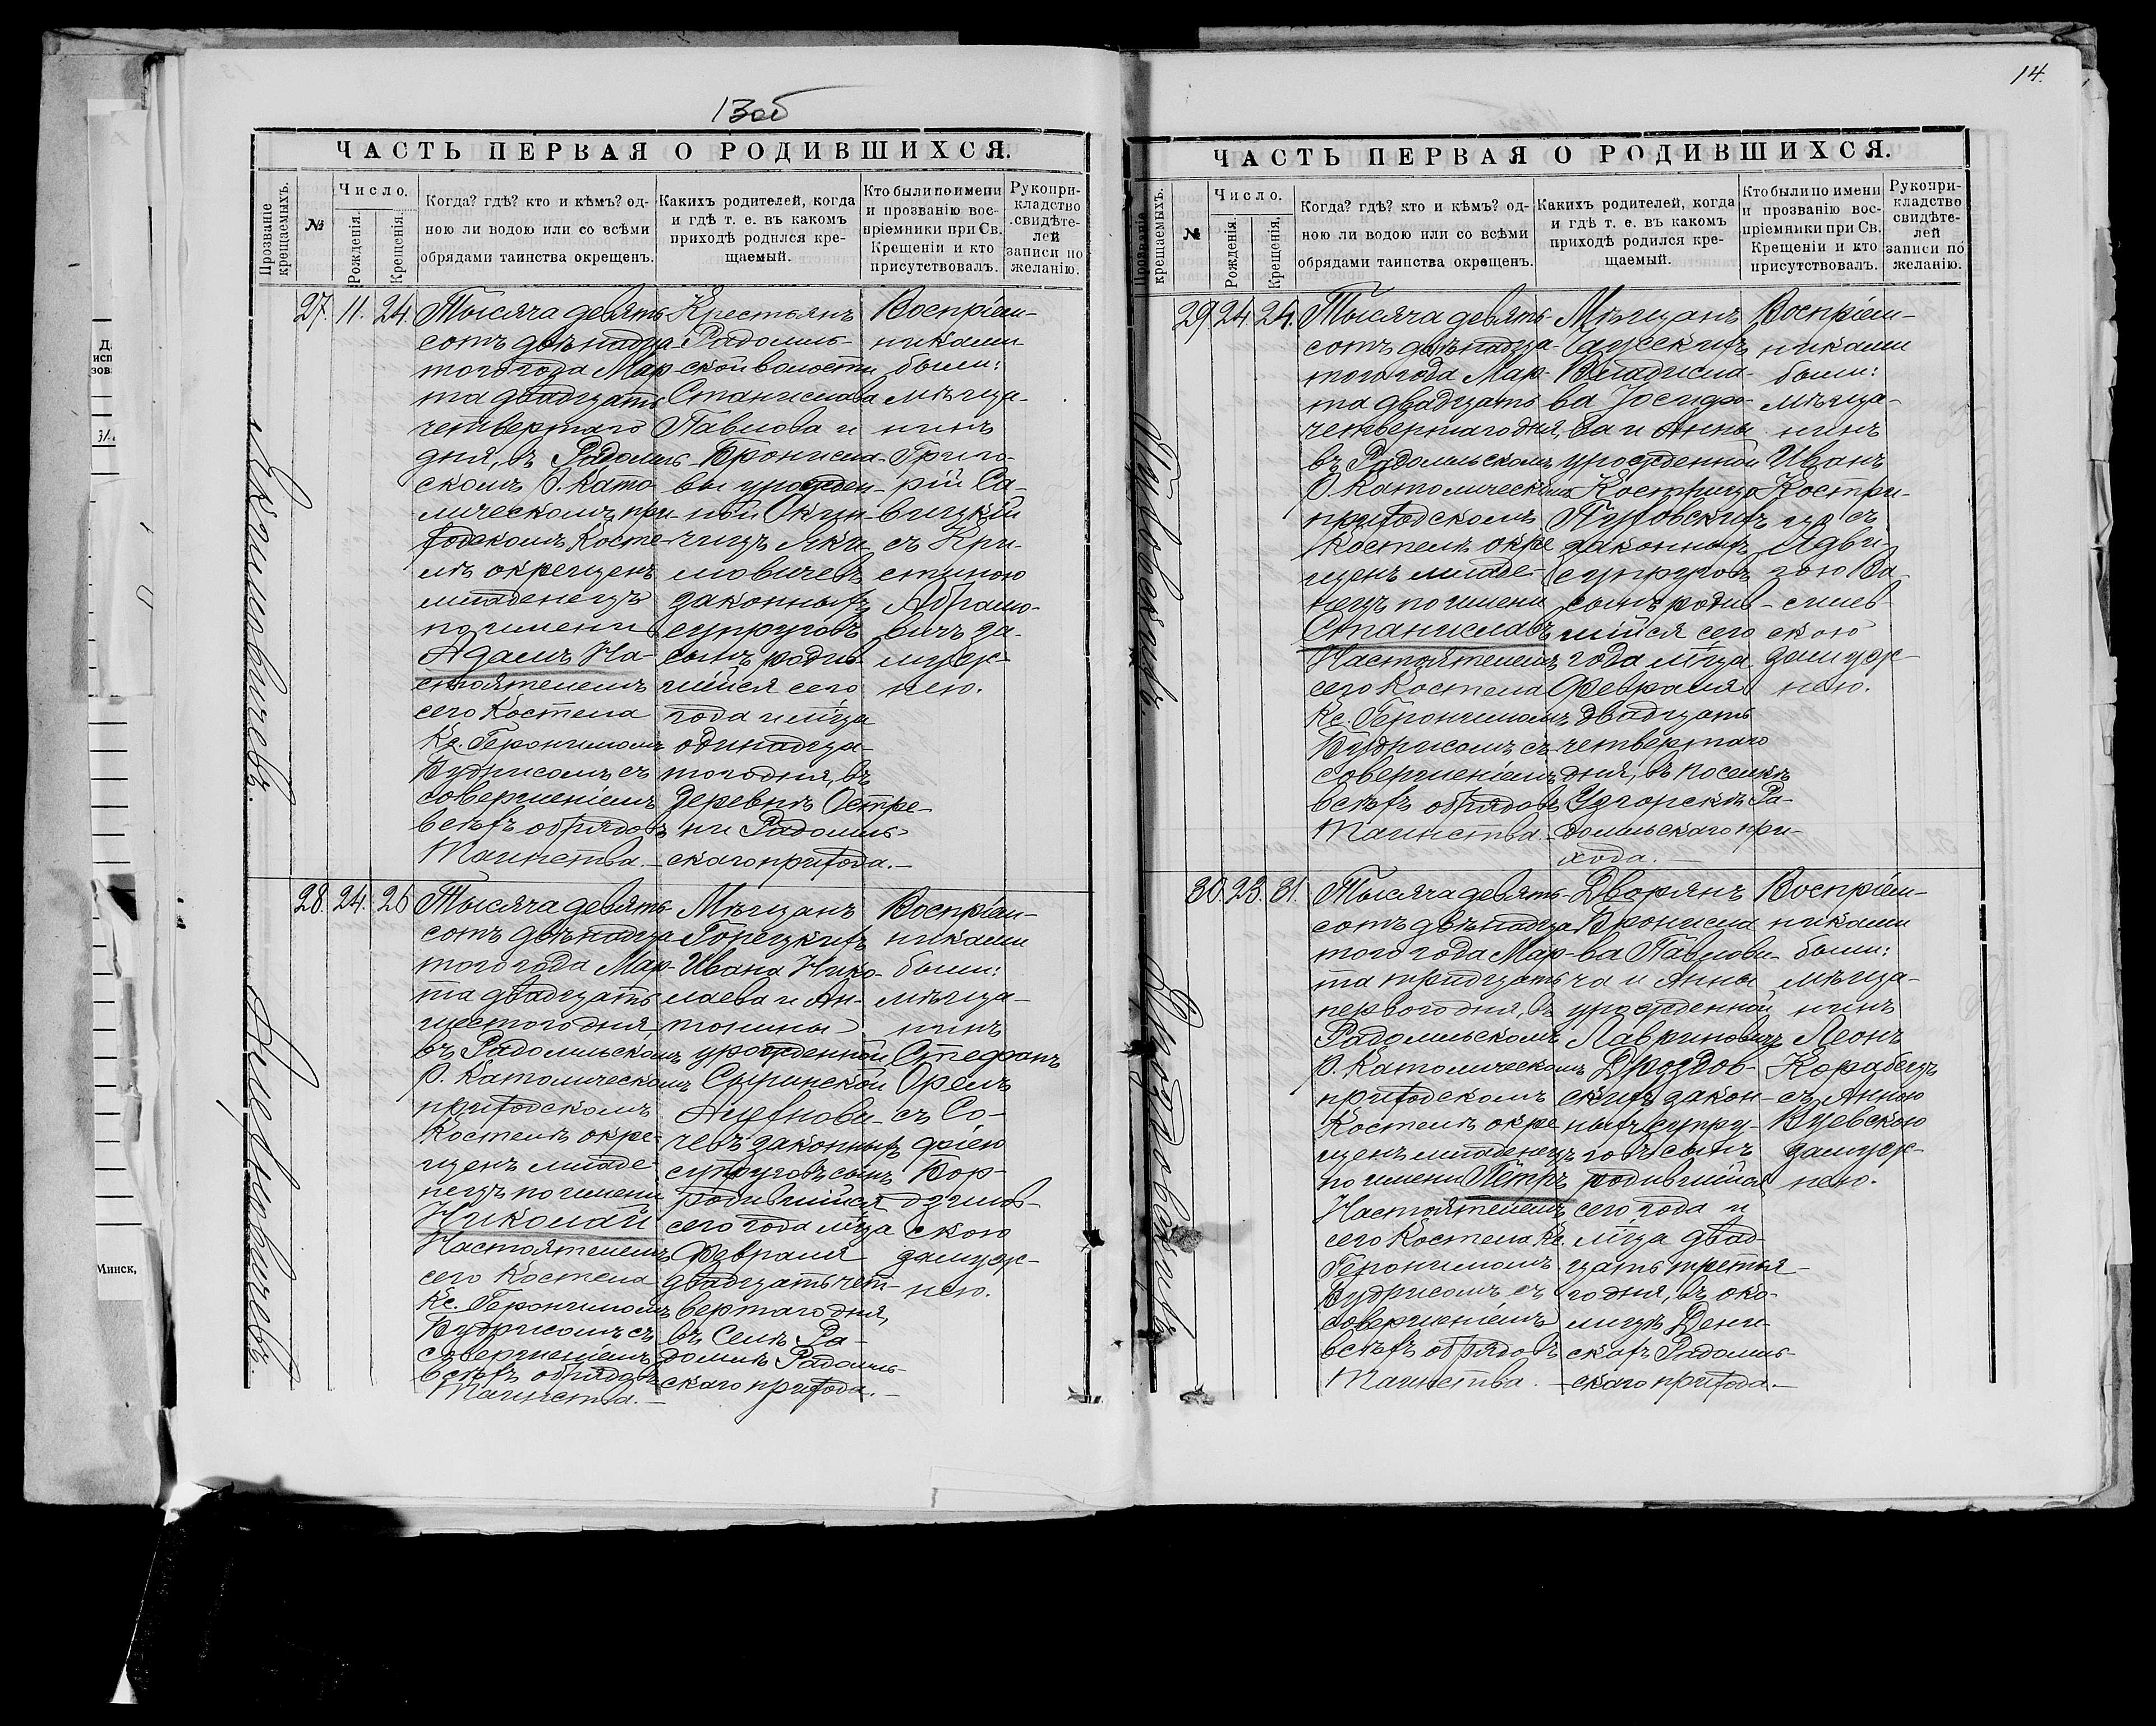 13об
ЧАСТЬ ПЕРВАЯ О РОДИВШИХСЯ.
Прозваніе крещаемыхъ.
№
Число.
Рожденія.
Крещенія.
Когда? гдѣ? кто и кѣмъ? од-
ною ли водою или со всѣми
обрядами таинства окрещенъ.
Какихъ родителей, когда
и гдѣ т. е. въ какомъ
приходѣ родился кре-
щаемый.
Кто были по имени
и прозванію вос-
пріемники при Св.
Крещеніи и кто
присутствовалъ.
Рукопри-
кладство
свидѣте-
лей
записи по
желанію.
Якимовичевъ.
27. 11. 24.
Тысяча девять
сотъ двѣнадца-
того года Мар-
та двадцать
четвертаго
дня, въ Радомль-
скомъ Р. Като-
лическомъ при-
ходскомъ Косте-
лѣ окрещенъ
младенецъ
по имени
Адамъ На-
стоятелемъ
сего Костела
Кс. Геронимомъ
Будрисомъ съ
совершеніемъ
всѣхъ обрядовъ
Таинства.
Крестьянъ
Радомль-
ской волости
Станислава
Павлова и
Бронисла-
вы урожден-
ной
Яки-
мовичевъ
законныхъ
супруговъ
сынъ родив-
шійся сего
года и м-ца
одинадца-
того дня, въ
деревнѣ Остре-
ни Радомль-
скаго прихода.
Воспріем-
никами
были:
мѣща-
нинъ
Григо-
рій Са-
вицкій
съ Кри-
стиною
Абрамо-
вичъ за-
муж-
нею.
28. 24. 26
Тысяча девять
сотъ двѣнадца-
того года Мар-
та двадцать
шестого дня
въ Радомльскомъ
Р. Католическомъ
приходскомъ
Костелѣ окре-
щенъ младе-
нецъ по имени
Николай
Настоятелемъ
сего Костела
Кс. Геронимомъ
Будрисомъ съ
совершеніемъ
всѣхъ обрядовъ
Таинства.
Мѣщанъ
Горецкихъ
Ивана Нико-
лаева и Ан-
тонины
урожденной
Сыринской
чевъ законныхъ
супруговъ сынъ
родившійся
сего года м-ца
Февраля
двадцать чет-
вертаго дня,
въ Селѣ Ра-
домлѣ Радомль-
скаго прихода.
Воспріем-
никами
были:
мѣща-
нинъ
Стефанъ
Орелъ
съ Со-
фіею
Бор-
дзилов-
скою
замуж-
нею.
14.
ЧАСТЬ ПЕРВАЯ О РОДИВШИХСЯ.
Прозваніе крещаемыхъ.
№
Число.
Рожденія.
Крещенія.
Когда? гдѣ? кто и кѣмъ? од-
ною ли водою или со всѣми
обрядами таинства окрещенъ.
Какихъ родителей, когда
и гдѣ т. е. въ какомъ
приходѣ родился кре-
щаемый.
Кто были по имени
и прозванію вос-
пріемники при Св.
Крещеніи и кто
присутствовалъ.
Рукопри-
кладство
свидѣте-
лей
записи по
желанію.
29. 24. 24.
Тысяча девять-
сотъ двѣнадца-
того года Мар-
та двадцать
четвертаго дня,
въ Радомльскомъ
Р. Католическомъ
приходскомъ
Костелѣ окре
щенъ младе-
нецъ по имени
Станиславъ
Настоятелемъ
сего Костела
Кс. Геронимомъ
Будрисомъ съ
совершеніемъ
всѣхъ обрядовъ
Таинства.
Мѣщанъ
Владисла-
ва Іосифо-
ва и Анны
урожденной
Кострица
законныхъ
супруговъ
сынъ родив-
шійся сего
года м-ца
Февраля
двадцать
четвертаго
дня, въ поселкѣ
Ра-
домльскаго при-
хода.
Воспріем-
никами
были:
мѣща-
нинъ
Иванъ
Костри-
ца съ
Ядви-
гою Ва
силев-
скою
замуж-
нею.
Дроздовскихъ.
30. 23. 31.
Тысяча девять-
сотъ двѣнадца
того года Мар-
та тридцать
перваго дня, въ
Радомльскомъ
Р. Католическомъ
приходскомъ
Костелѣ окре
щенъ младенецъ
по имени Петръ
Настоятелемъ
сего Костела Кс.
Геронимомъ
Будрисомъ съ
совершеніемъ
всѣхъ обрядовъ
Таинства.
Дворянъ
Бронисла
ва Павлови-
ча и Анны
урожденной
Лавриновичъ
Дроздов-
скихъ закон-
ныхъ супру-
говъ сынъ
родившійся
сего года и
м-ца двад-
цать третья-
го дня, въ око-
лицѣ
Радомль-
скаго прихода.
Воспріем-
никами
были:
мѣща-
нинъ
Леонъ
Корабецъ
съ Анною
замуж-
нею.
Минск,